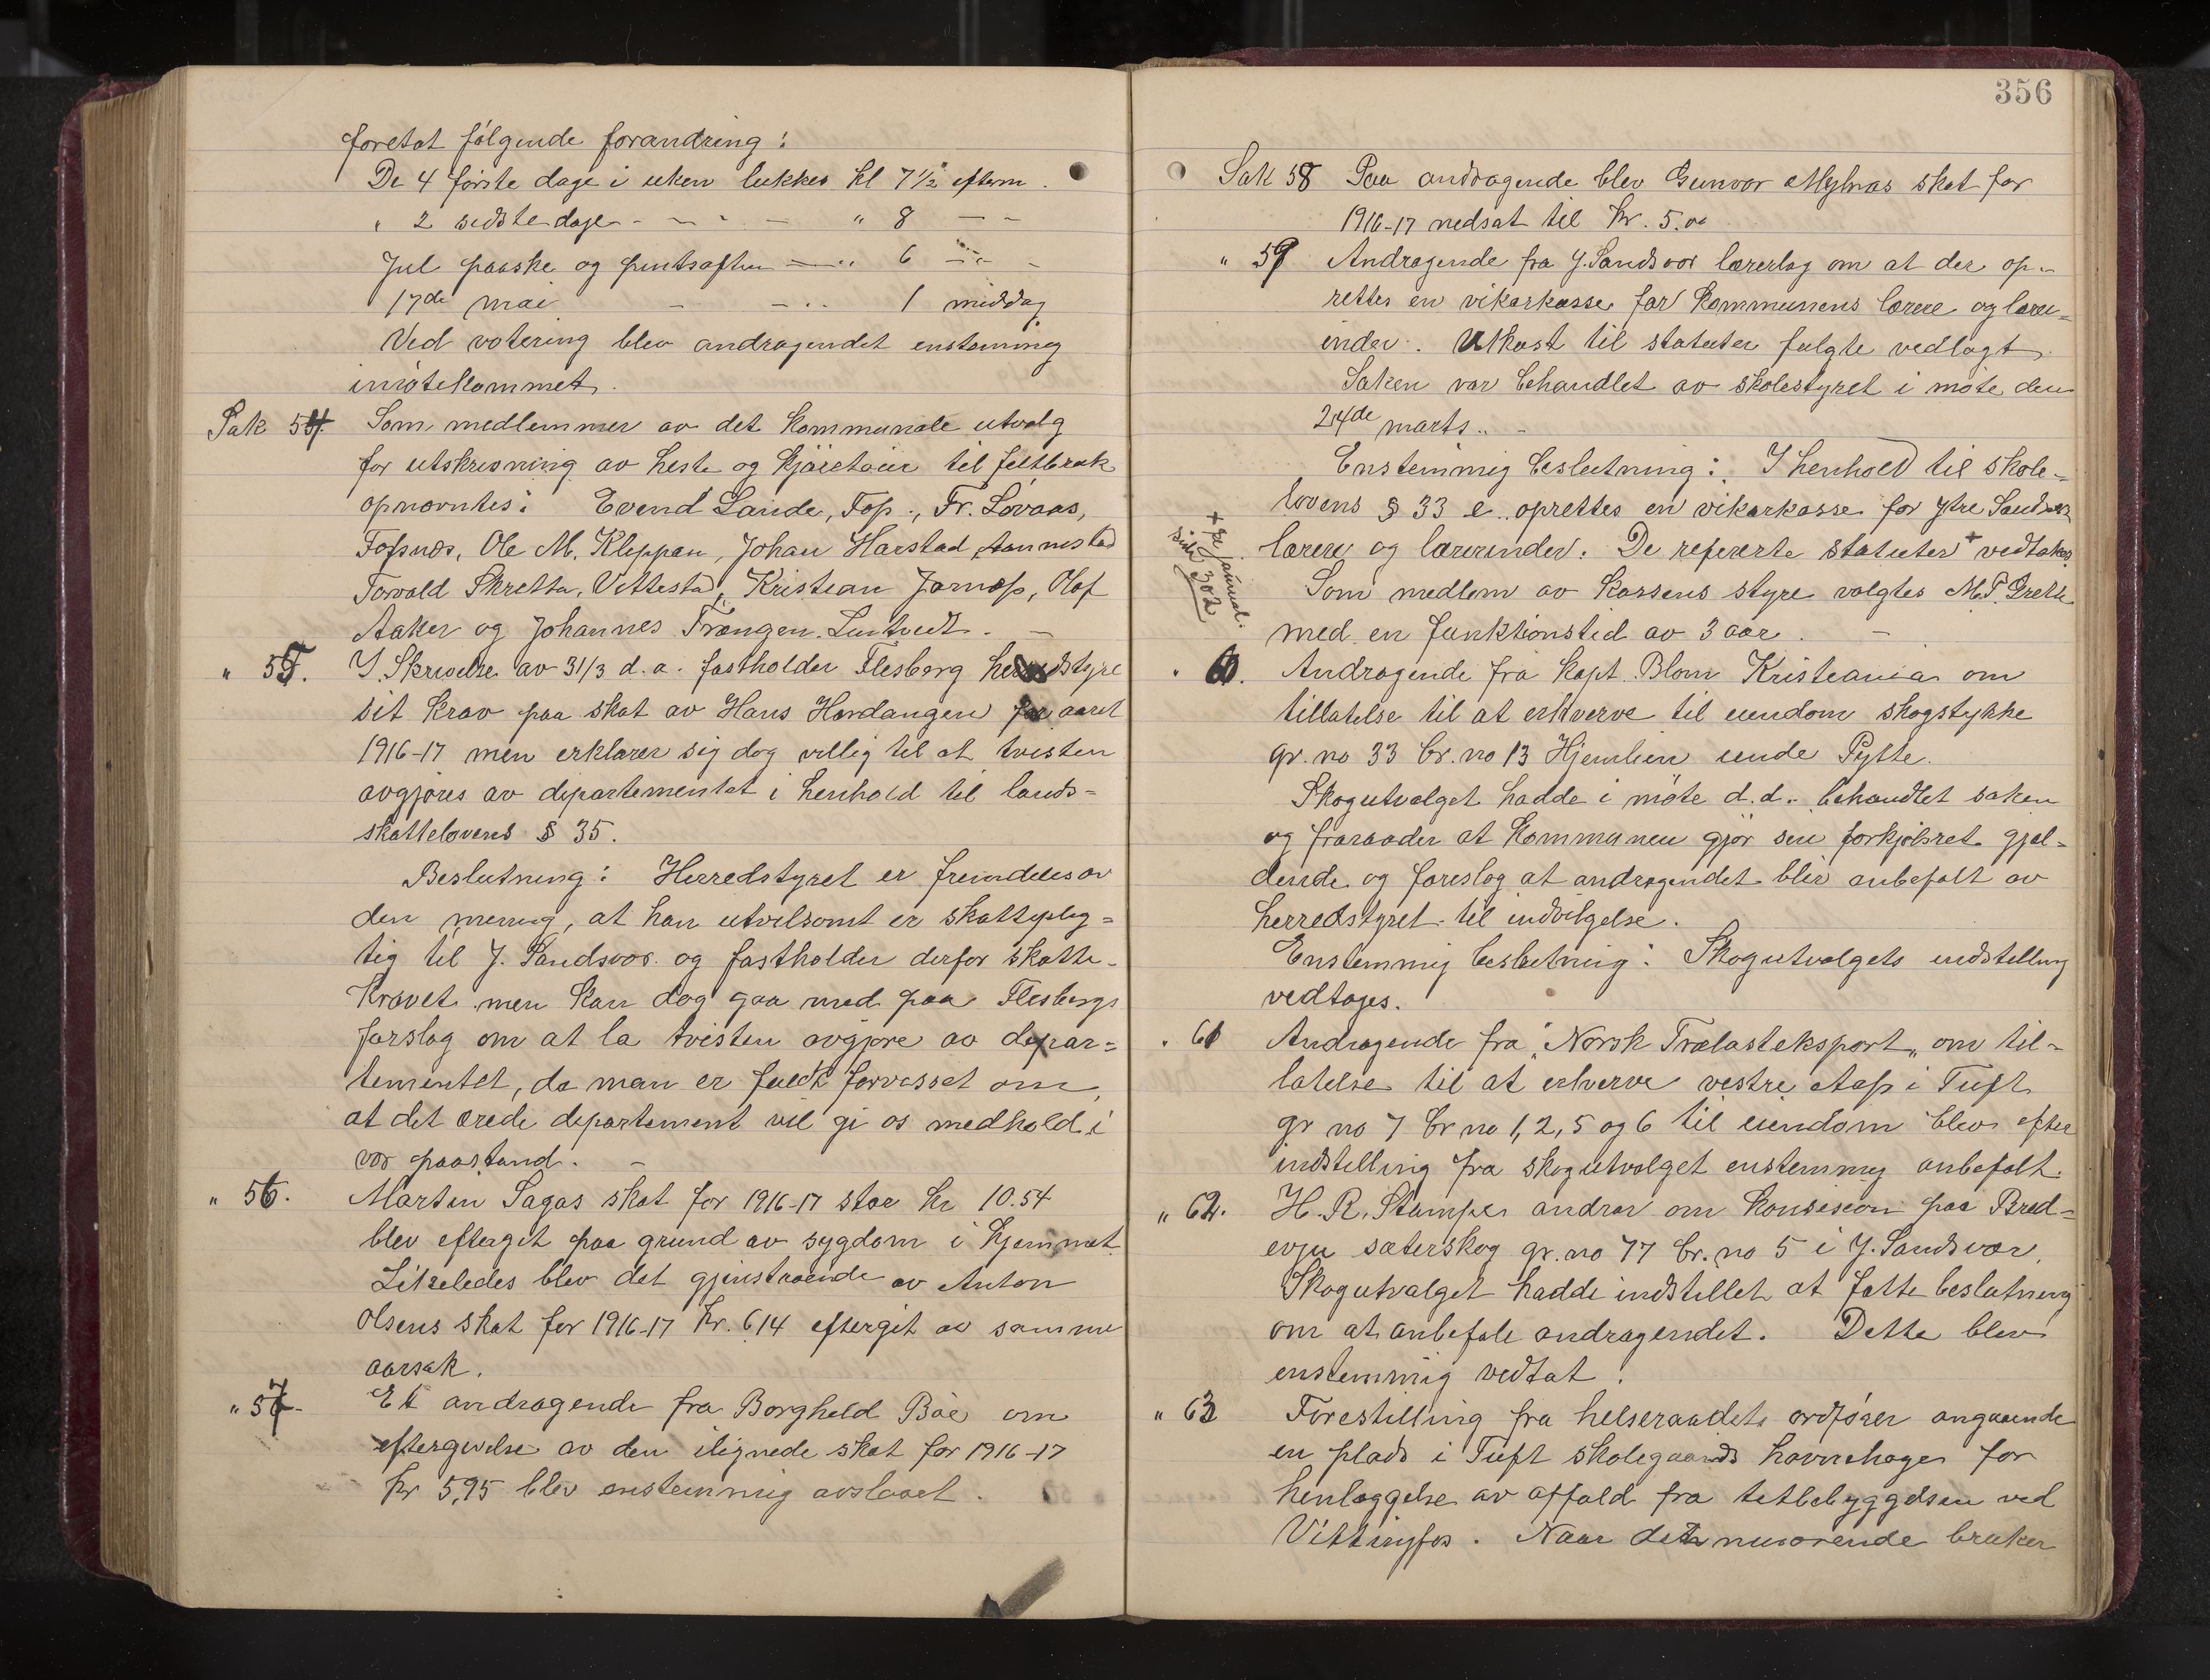 foretat følgende forandring:
De 4 første dage i uken lukkes kl 7 1/2 efterm.
" 2 sidste dage - - - - " 8 - -
Jul paaske og pintsaften - " 6 - -
17de mai - - " 1 middag
Ved votering blev andragendet enstemmig
imøtekommet.
Sak 54. Som medlemmer av det kommunale utvalg
for utskrivning av heste og kjøretøier til feltbruk
opnævntes: Evend Lande, Fos., Fr. Løvaas,
Fossnes, Ole M. Kleppan, Johan Harstad, Aannestad
Torvald Skretta, Vittestad, Kristian Jarnæss, Olaf
Aaker og Johannes Trængen. Luntvedt. -
" 55. I Skrivelse av 31/3 d.a. fastholder Flesberg herredstyre
sit krav paa skat av Hans Hardangen for aaret
1916-17 men erklærer sig dog villig til at tvisten
avgjøres av departementet i henhold til lands=
skattelovens § 35.
Beslutning: Herredstyret er fremdeles av
den mening, at han utvilsomt er skattepleg=
tig til Y. Sandsvær og fastholder derfor skatte-
kravet men kan dog gaa med paa Flesbergs
forslag om at la tvisten avgjøre av depar=
tementet, da man er fuldt forvisset om,
at det ærede departement vil gi os medhold i
vor paastand. -
" 56. Martin Sagas skat for 1916-17 stor kr 10.54
blev eftergit paa grund av sygdom i hjemmet
Likeledes blev det gjenstaaende av Anton
Olsens skat for 1916-17 kr. 6.14 eftergit av samme
aarsak.
" 57. Et andragende fra Borghild Bøe om
eftergivelse av den ilignede skat for 1916-17
kr 5,95 blev enstemmig avslaaet.
356
Sak 58 Paa andragende blev Gunvor Myhras skat for
1916-17 nedsat til kr. 5.00
" 59 Andragende fra Y. Sandsvær lærerlag om at der op-
rettes en vikarkasse for kommunens lærere og lærer=
inder. Utkast til statuter fulgte vedlagt.
Saken var behandlet av skolestyret i møte den
24de marts.. -
Enstemmig beslutning: I henhold til skole-
lovens § 33 e. oprettes en vikarkasse for Ytre Sandsvær
lærere og lærerinder. De refererte statuter + vedtakes
+ se journal.
side 302
Som medlem av kassens styre valgtes M.T. Grette
med en funktionstid av 3 aar. -
" 60. Andragende fra kapt. Blom Kristiania om
tillatelse til at erhverve til eiendom skogstykke
gr. no 33 br. no 13 Hjemlien unde Pytte.
Skogutvalget hadde i møte d.d. behandlet saken
og fraraader at kommunen gjør sin forkjøbsret gjæl-
dende og foreslog at andragendet blir anbefalt av
herredstyret til indvilgelse.
Enstemmig beslutning: Skogutvalgets indstilling
vedtages.
" 61 Andragende fra "Norsk Trælasteksport" om til-
latelse til at erhverve vestre Aass i Tuft
gr no 7 br no 1, 2, 5 og 6 til eiendom blev efter
indstilling fra skogutvalget enstemmig anbefalt.
" 62. H. R. Stamper andrar om konsesion paa Bred=
evju sæterskog gr. no 77 br. no 5 i Y. Sandsvær.
Skogutvalget hadde indstillet at fatte beslutning
om at anbefale andragendet. Dette blev
enstemmig vedtat.
" 63 Forestilling fra helseraadets ordfører angaaende
en plads i Tuft skolegaards havnehage for
henlæggelse av affald fra tetbebyggelsen ved
Vittingfos. Naar den nuværende bruker